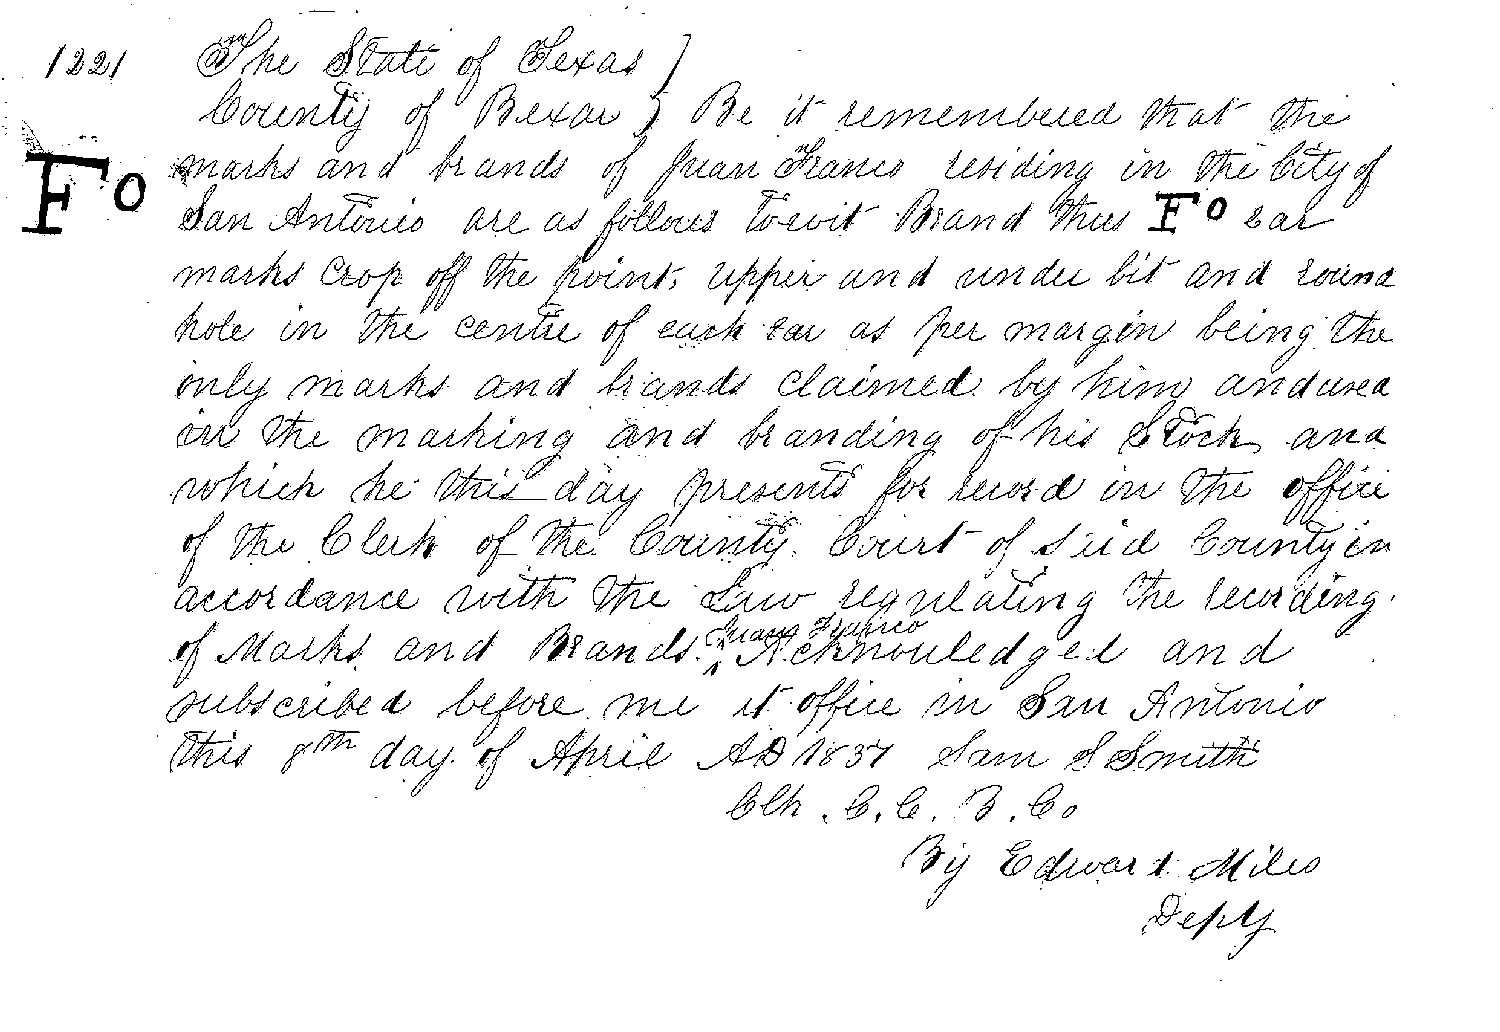 1221 The State of Texas }
County of Bexar } Be it remembered that the
F o marks and brands of Juan Franco residing in the City of
San Antonio are as follows towit Brand thus F o ear
marks crop off the point, upper and under bit and round
hole in the centre of each ear as per margin being the
only marks and brands claimed by him and used
in the marking and branding of his Stock and
which he this day presents for record in the office
of the Clerk of the County Court of said County in
accordance with the Law regulating the recording
Juan Franco
of Marks and Brands. ^ Acknowledged and
subscribed before me at office in San Antonio
this 8th day of April AD 1857 Sam S Smith
Clk. C. C. B. Co
By Edward Miles
Depy